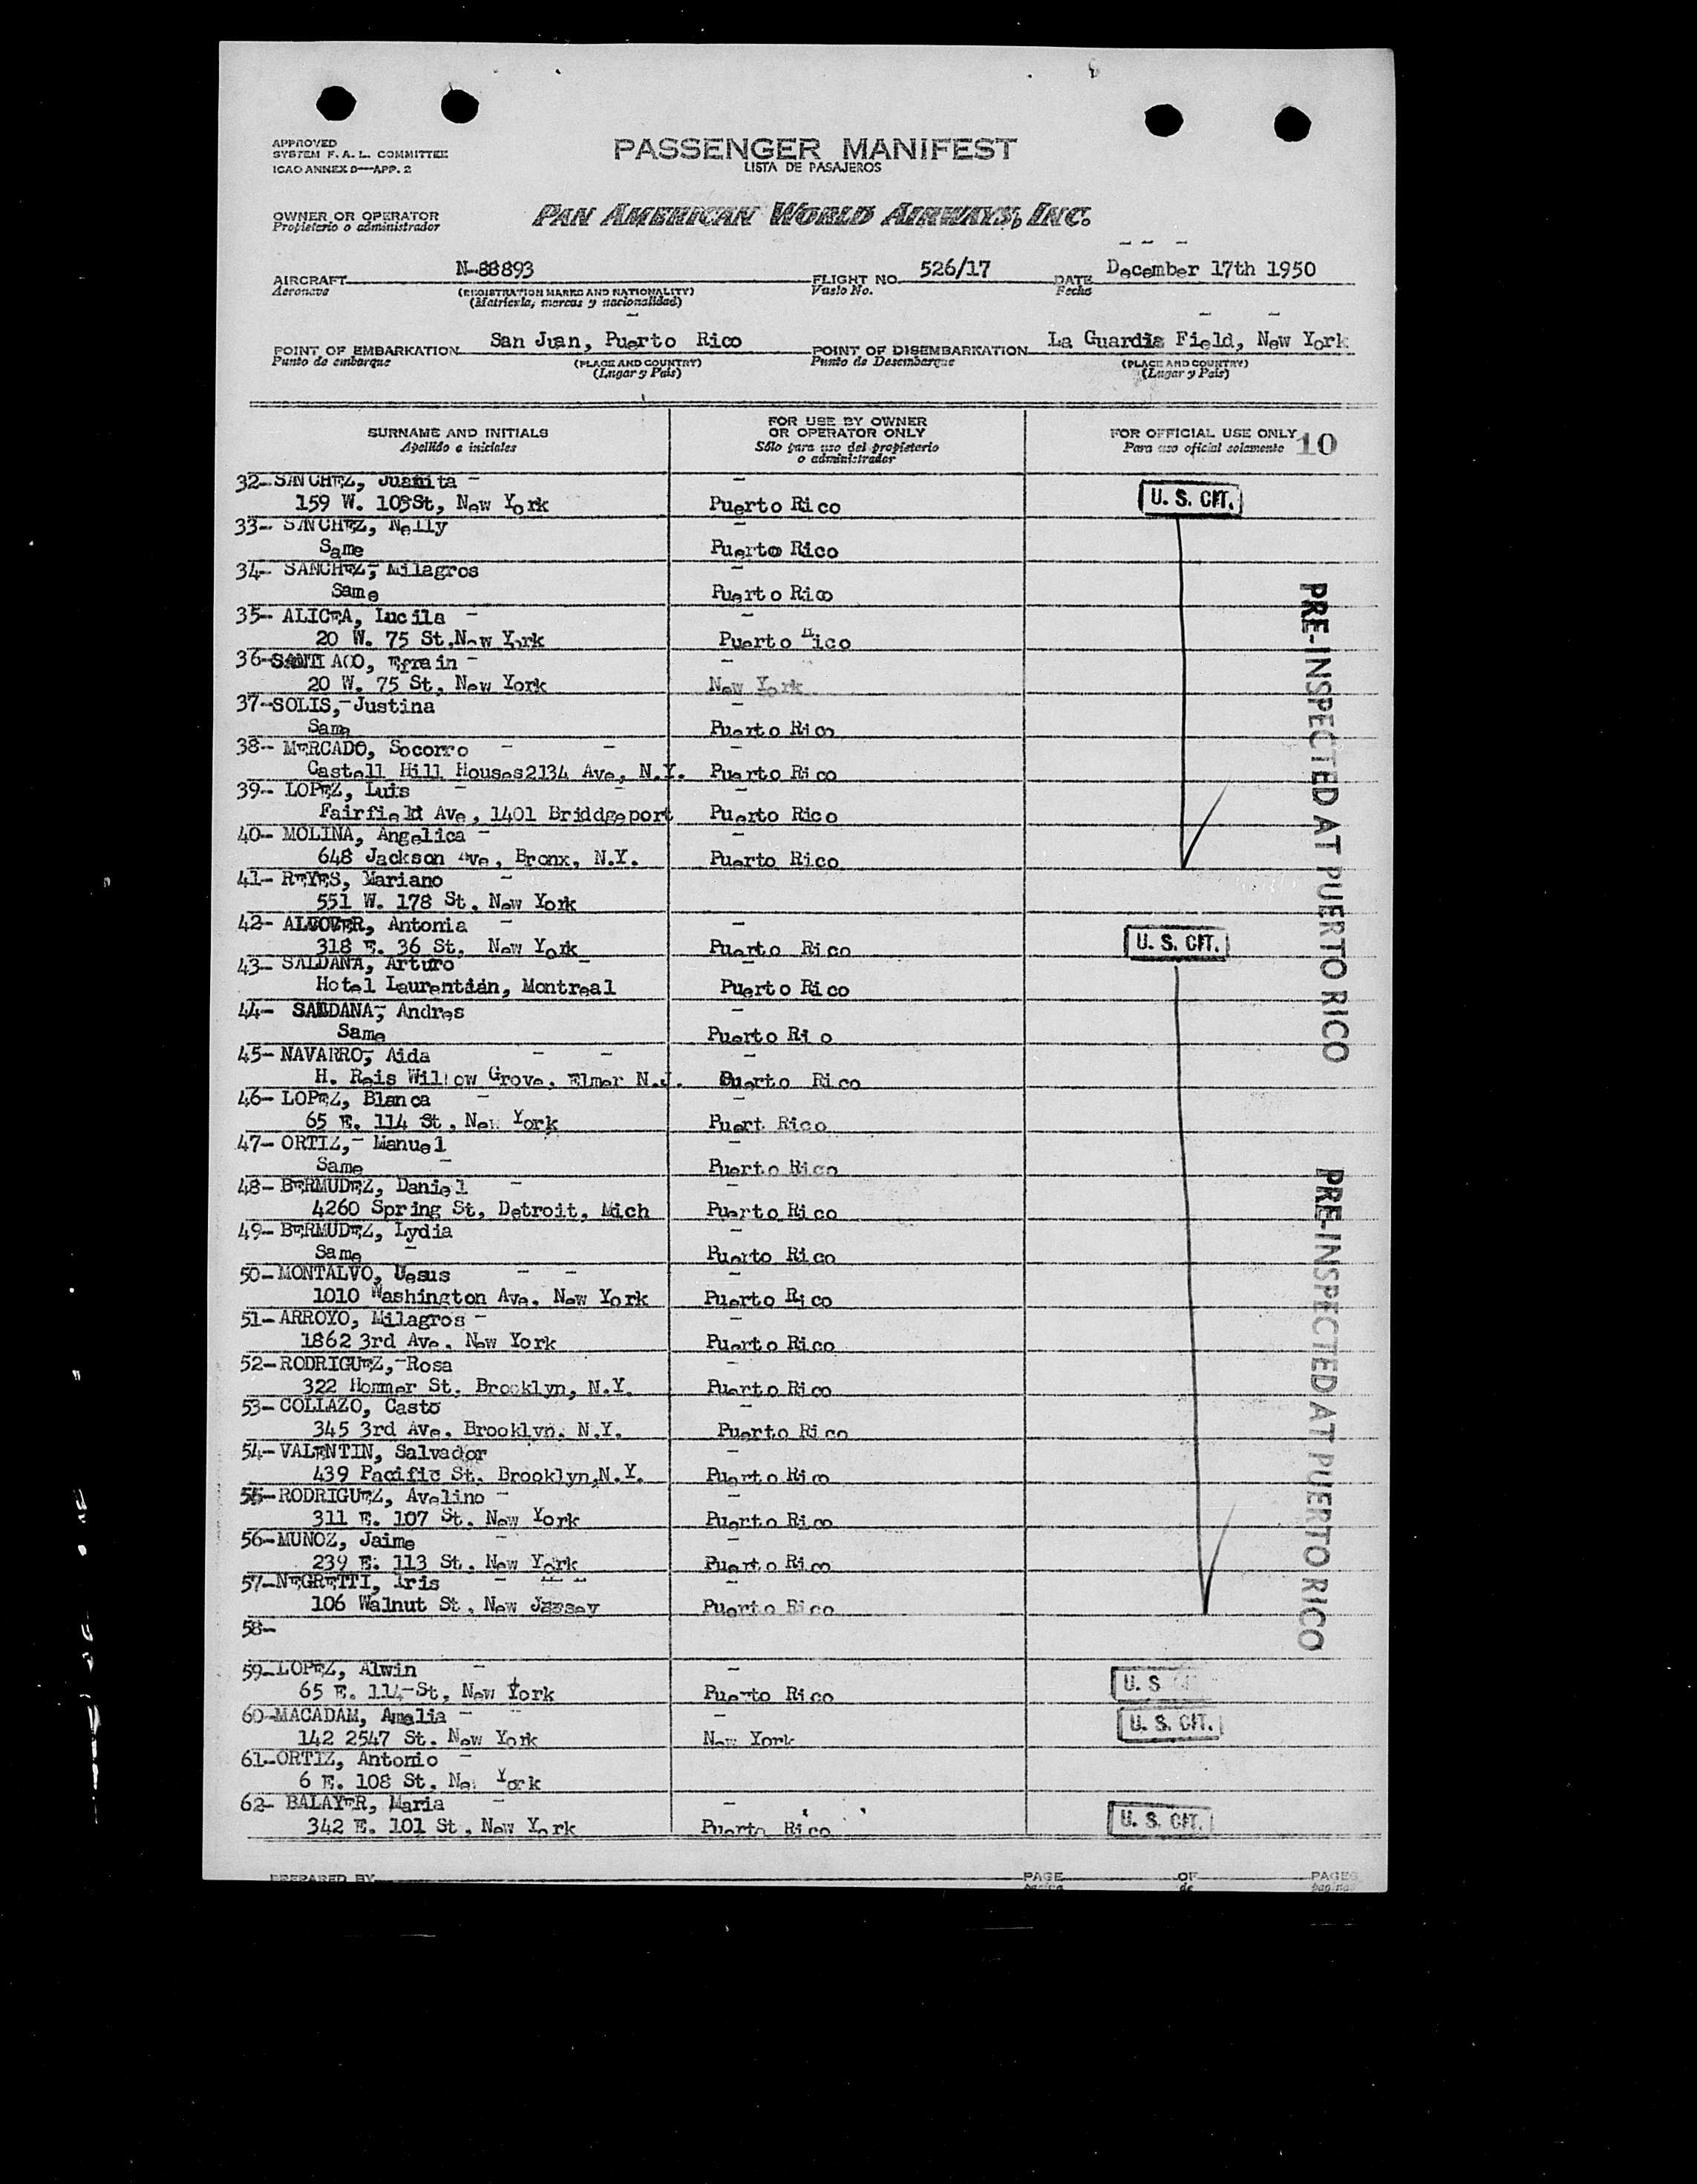 APPROVED
SYSTEM F. A. L. COMMITTEE
ICAO ANNEX 9—APP. 2
PASSENGER MANIFEST
LISTA DE PASAJEROS
OWNER OR OPERATOR
Propietario o administrador
PAN AMERICAN WORLD AIRWAYS, INC.
AIRCRAFT N-88893 FLIGHT NO. 526/17 DATE December 17th 1950
Aeronave (REGISTRATION MARKS AND NATIONALITY) Vuelo No. Fecha
(Matrícula, marcas y nacionalidad)
POINT OF EMBARKATION San Juan, Puerto Rico POINT OF DISEMBARKATION La Guardia Field, New York
Punto de embarque (PLACE AND COUNTRY) Punto de Desembarque (PLACE AND COUNTRY)
(Lugar y País) (Lugar y País)
SURNAME AND INITIALS FOR USE BY OWNER OR OPERATOR ONLY FOR OFFICIAL USE ONLY 10
Apellido e iniciales Sólo para uso del propietario o administrador Para uso oficial solamente
32- SANCHEZ, Juanita
159 W. 103St, New York Puerto Rico U. S. CIT.
33- SANCHEZ, Nelly
Same Puerto Rico
34- SANCHEZ, Milagros
Same Puerto Rico
35- ALICEA, Lucila
20 W. 75 St. New York Puerto Rico
36- SANTIAGO, Efrain
20 W. 75 St, New York New York
37- SOLIS, Justina
Same Puerto Rico
38- MERCADO, Socorro
Castell Hill Houses2134 Ave, N.Y. Puerto Rico
39- LOPEZ, Luis
Fairfield Ave, 1401 Briddgeport Puerto Rico
40- MOLINA, Angelica
648 Jackson Ave, Bronx, N.Y. Puerto Rico
41- REYES, Mariano
551 W. 178 St. New York
42- ALCOVER, Antonia
318 E. 36 St. New York Puerto Rico U. S. CIT.
43- SALDANA, Arturo
Hotel Laurentian, Montreal Puerto Rico
44- SALDANA, Andres
Same Puerto Ri o
45- NAVARRO, Aida
H. Reis Willow Grove. Elmer N.J. Puerto Rico
46- LOPEZ, Blanca
65 E. 114 St. New York Puert Rico
47- ORTIZ, Manuel
Same Puerto Rico
48- BERMUDEZ, Daniel
4260 Spring St, Detroit, Mich Puerto Rico
49- BERMUDEZ, Lydia
Same Puerto Rico
50- MONTALVO, Jesus
1010 Washington Ave. New York Puerto Rico
51- ARROYO, Milagros
1862 3rd Ave. New York Puerto Rico
52- RODRIGUEZ, Rosa
322 Hommer St. Brooklyn, N.Y. Puerto Rico
53- COLLAZO, Casto
345 3rd Ave. Brooklyn. N.Y. Puerto Rico
54- VALENTIN, Salvador
439 Pacific St. Brooklyn,N.Y. Puerto Rico
55- RODRIGUEZ, Avelino
311 E. 107 St. New York Puerto Rico
56- MUNOZ, Jaime
239 E. 113 St. New York Puerto Rico
57- NEGRETTI, Iris
106 Walnut St. New Jersey Puerto Rico
58-
59- LOPEZ, Alwin
65 E. 114 St, New York Puerto Rico U. S.
60- MACADAM, Amelia
142 2547 St. New York New York U. S. CIT.
61- ORTIZ, Antonio
6 E. 108 St. New York
62- BALAYER, Maria
342 E. 101 St. New York Puerto Rico U. S. CIT.
PRE-INSPECTED AT PUERTO RICO
PRE-INSPECTED AT PUERTO RICO
PREPARED BY PAGE OF PAGES
pagina de paginas